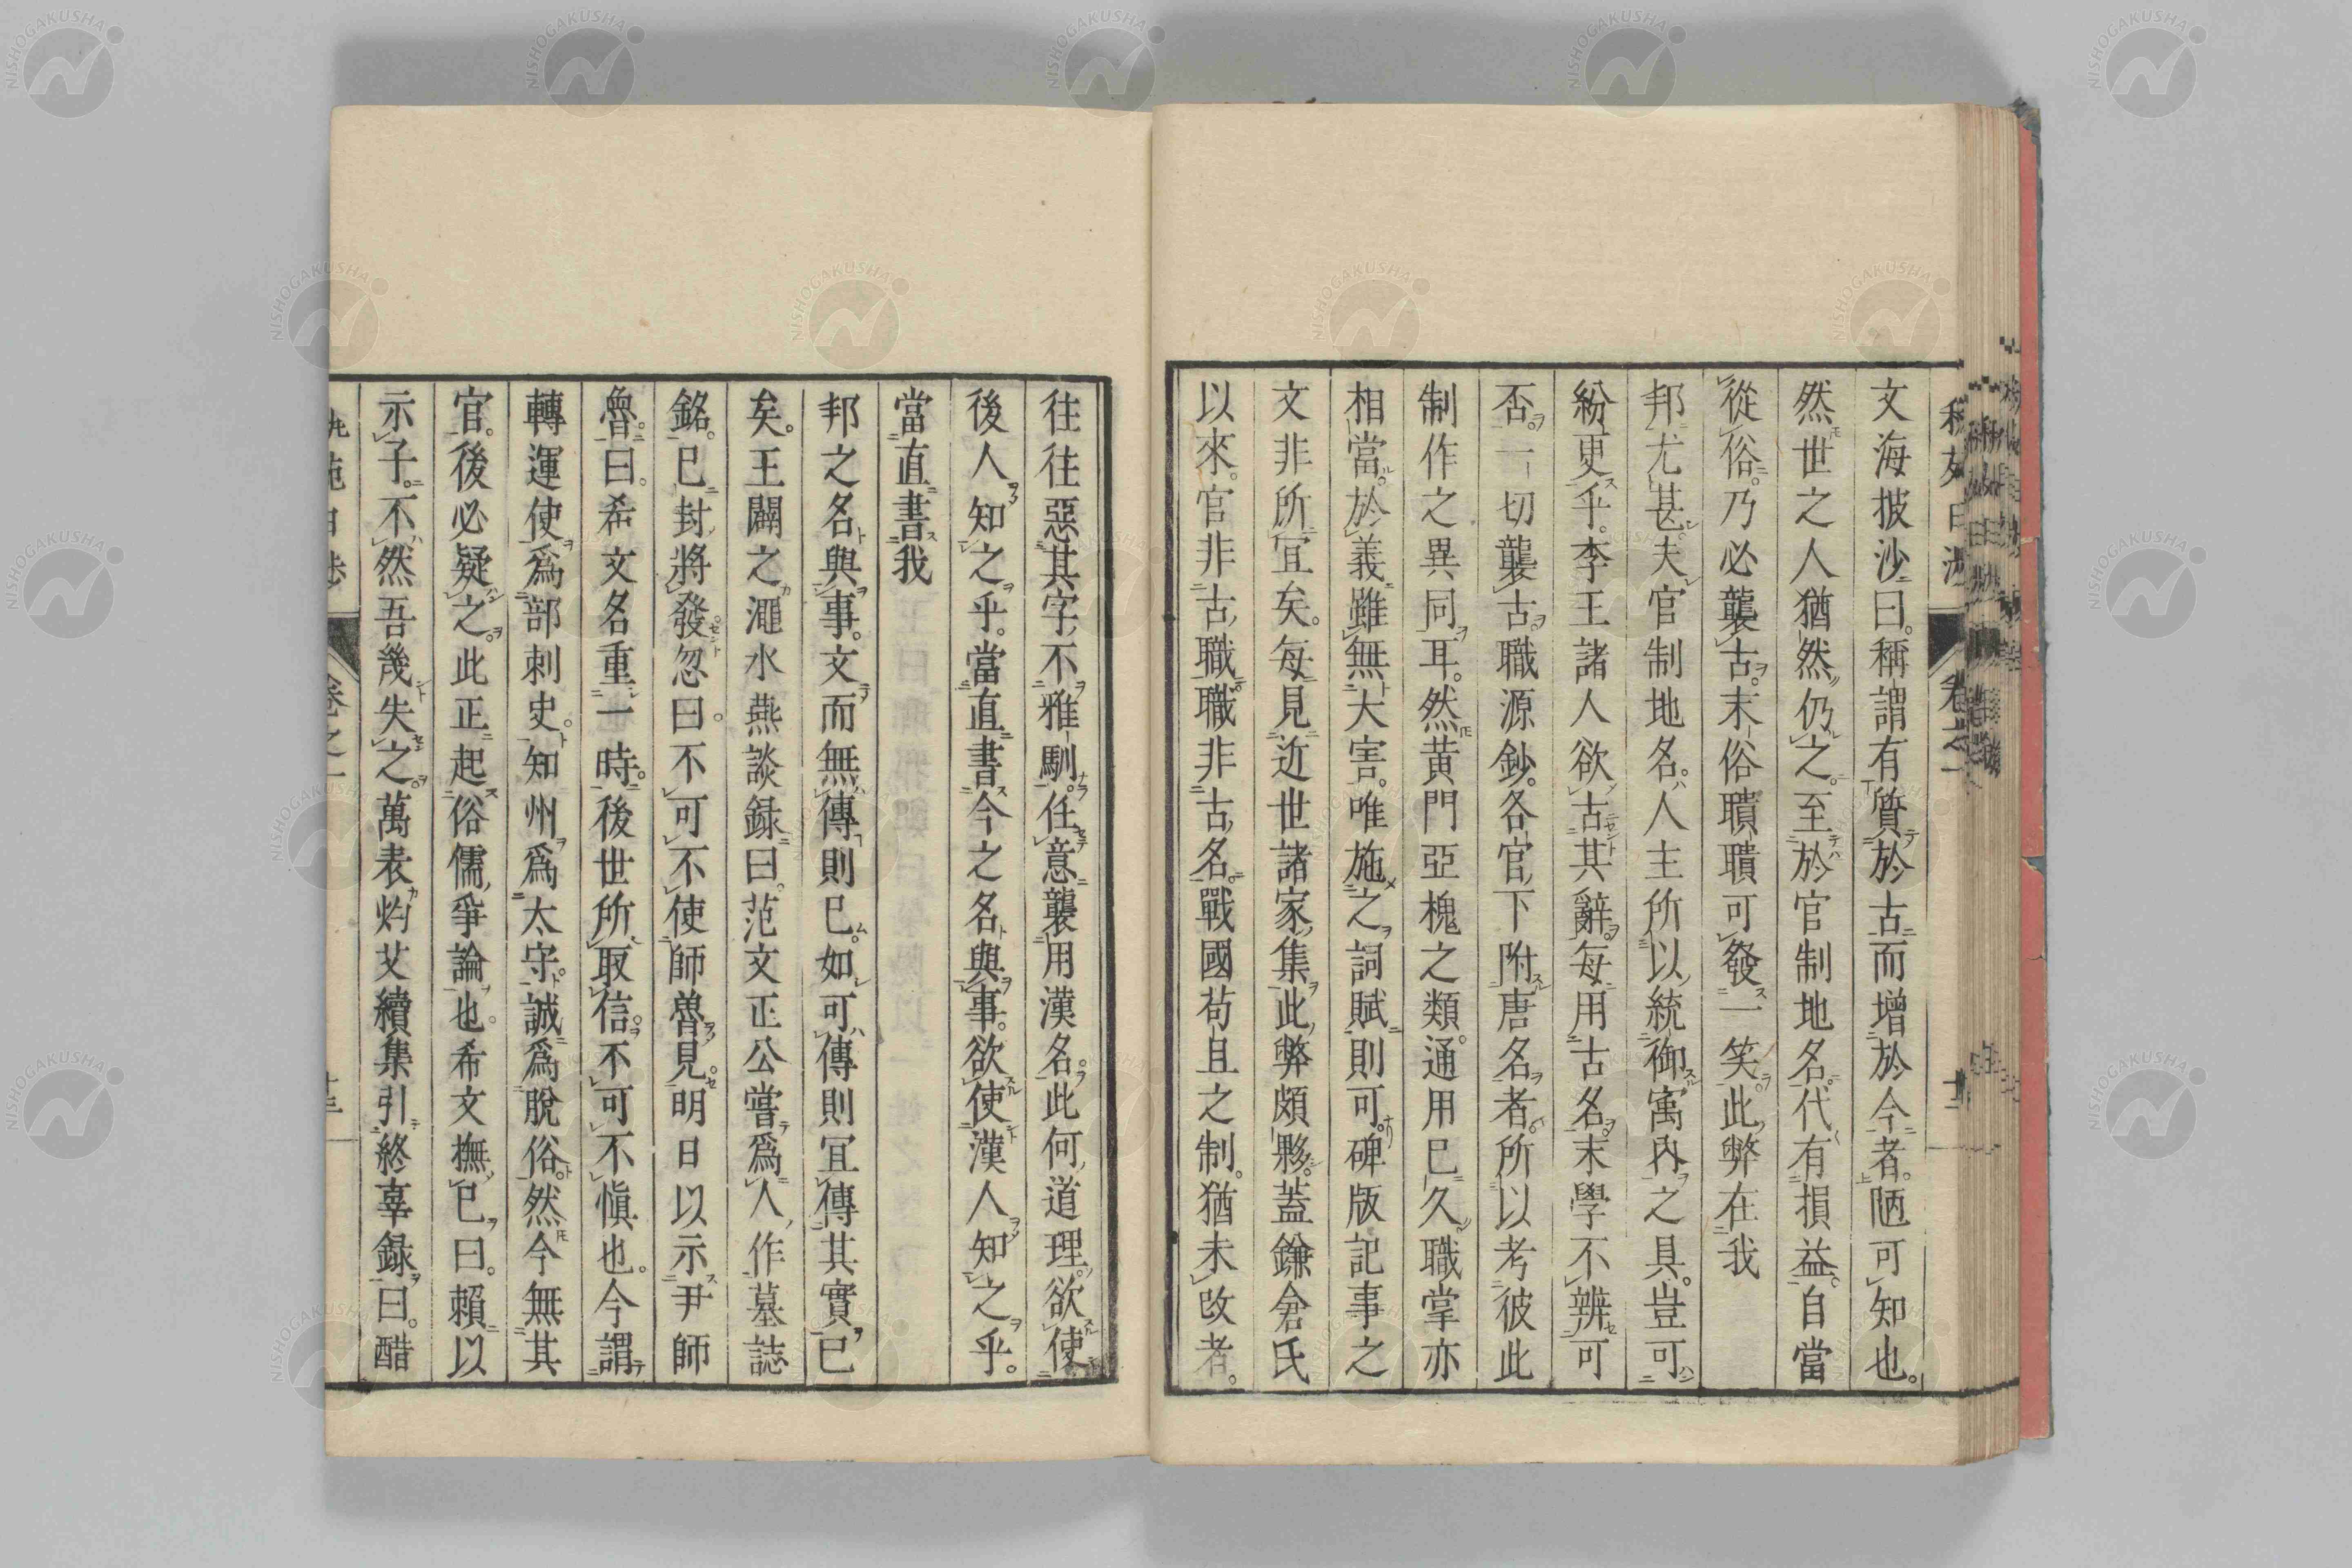 文海披沙曰。稱謂有質於古而增於今者。陋可知也。
然世之人猶然仍之。至於官制地名。代有損益。自當
從俗。乃必襲古。末俗聵聵可發一笑。此弊在我
邦尤甚。夫官制地名。人主所以統御寓內之具。豈可
紛更乎。李王諸人欲古其辭。每用古名。末學不辨可
否。一切襲古。職源鈔。各官下附唐名者。所以考彼此
制作之異同耳。然黃門亞槐之類。通用已久。職掌亦
相當。於義雖無大害。唯施之詞賦則可。碑版記事之
文非所宜矣。每見近世諸家集。此弊頗夥。蓋鎌倉氏
以來。官非古職。職非古名。戰國苟且之制。猶未改者。
往往惡其字不雅馴。任意襲用漢名。此何道理。欲使
後人知之乎。當直書今之名與事。欲使漢人知之乎。
當直書我
邦之名與事。文而無傳則已。如可傳則宜傳其實已
矣。王闢之澠水燕談錄曰。范文正公嘗爲人作墓誌
銘。已封將發。忽曰。不可不使師魯見。明日以示尹師
魯。曰。希文名重一時。後世所取信。不可不愼也。今謂
轉運使爲部刺史。知州爲太守。誠爲脫俗。然今無其
官。後必疑之。此正起俗儒爭論也。希文撫已曰。賴以
示子。不然吾幾失之。萬表灼艾續集引終辜錄曰。醋
卷之一
卷之一